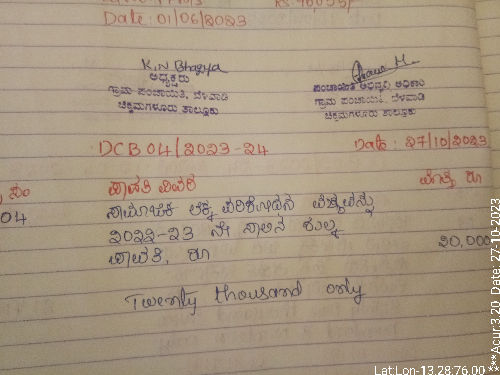 Date: 01/06/2023
K.N Bhagya
ಅಧ್ಯಕ್ಷರು
ಗ್ರಾಮ ಪಂಚಾಯಿತಿ, ಬೆಳವಾಡಿ
ಚಿಕ್ಕಮಗಳೂರು ತಾಲ್ಲೂಕು
ಪಂಚಾಯಿತಿ ಅಭಿವೃದ್ಧಿ ಅಧಿಕಾರಿ
ಗ್ರಾಮ ಪಂಚಾಯಿತಿ, ಬೆಳವಾಡಿ
ಚಿಕ್ಕಮಗಳೂರು ತಾಲ್ಲೂಕು
DCB 04/2023-24 Date: 27/10/2023
ಪಾವತಿ ವಿವರ ಮೊತ್ತ ರೂ
04 ಸಾಮಾಜಿಕ ಲೆಕ್ಕ ಪರಿಶೋಧನೆ ವೆಚ್ಚವನ್ನು
2022-23 ನೇ ಸಾಲಿನ ಶುಲ್ಕ
ಪಾವತಿ, ರೂ 20,000
Twenty thousand only
Lat:Lon-13.28:76.00 ***Acur:3.20 Date: 27-10-2023